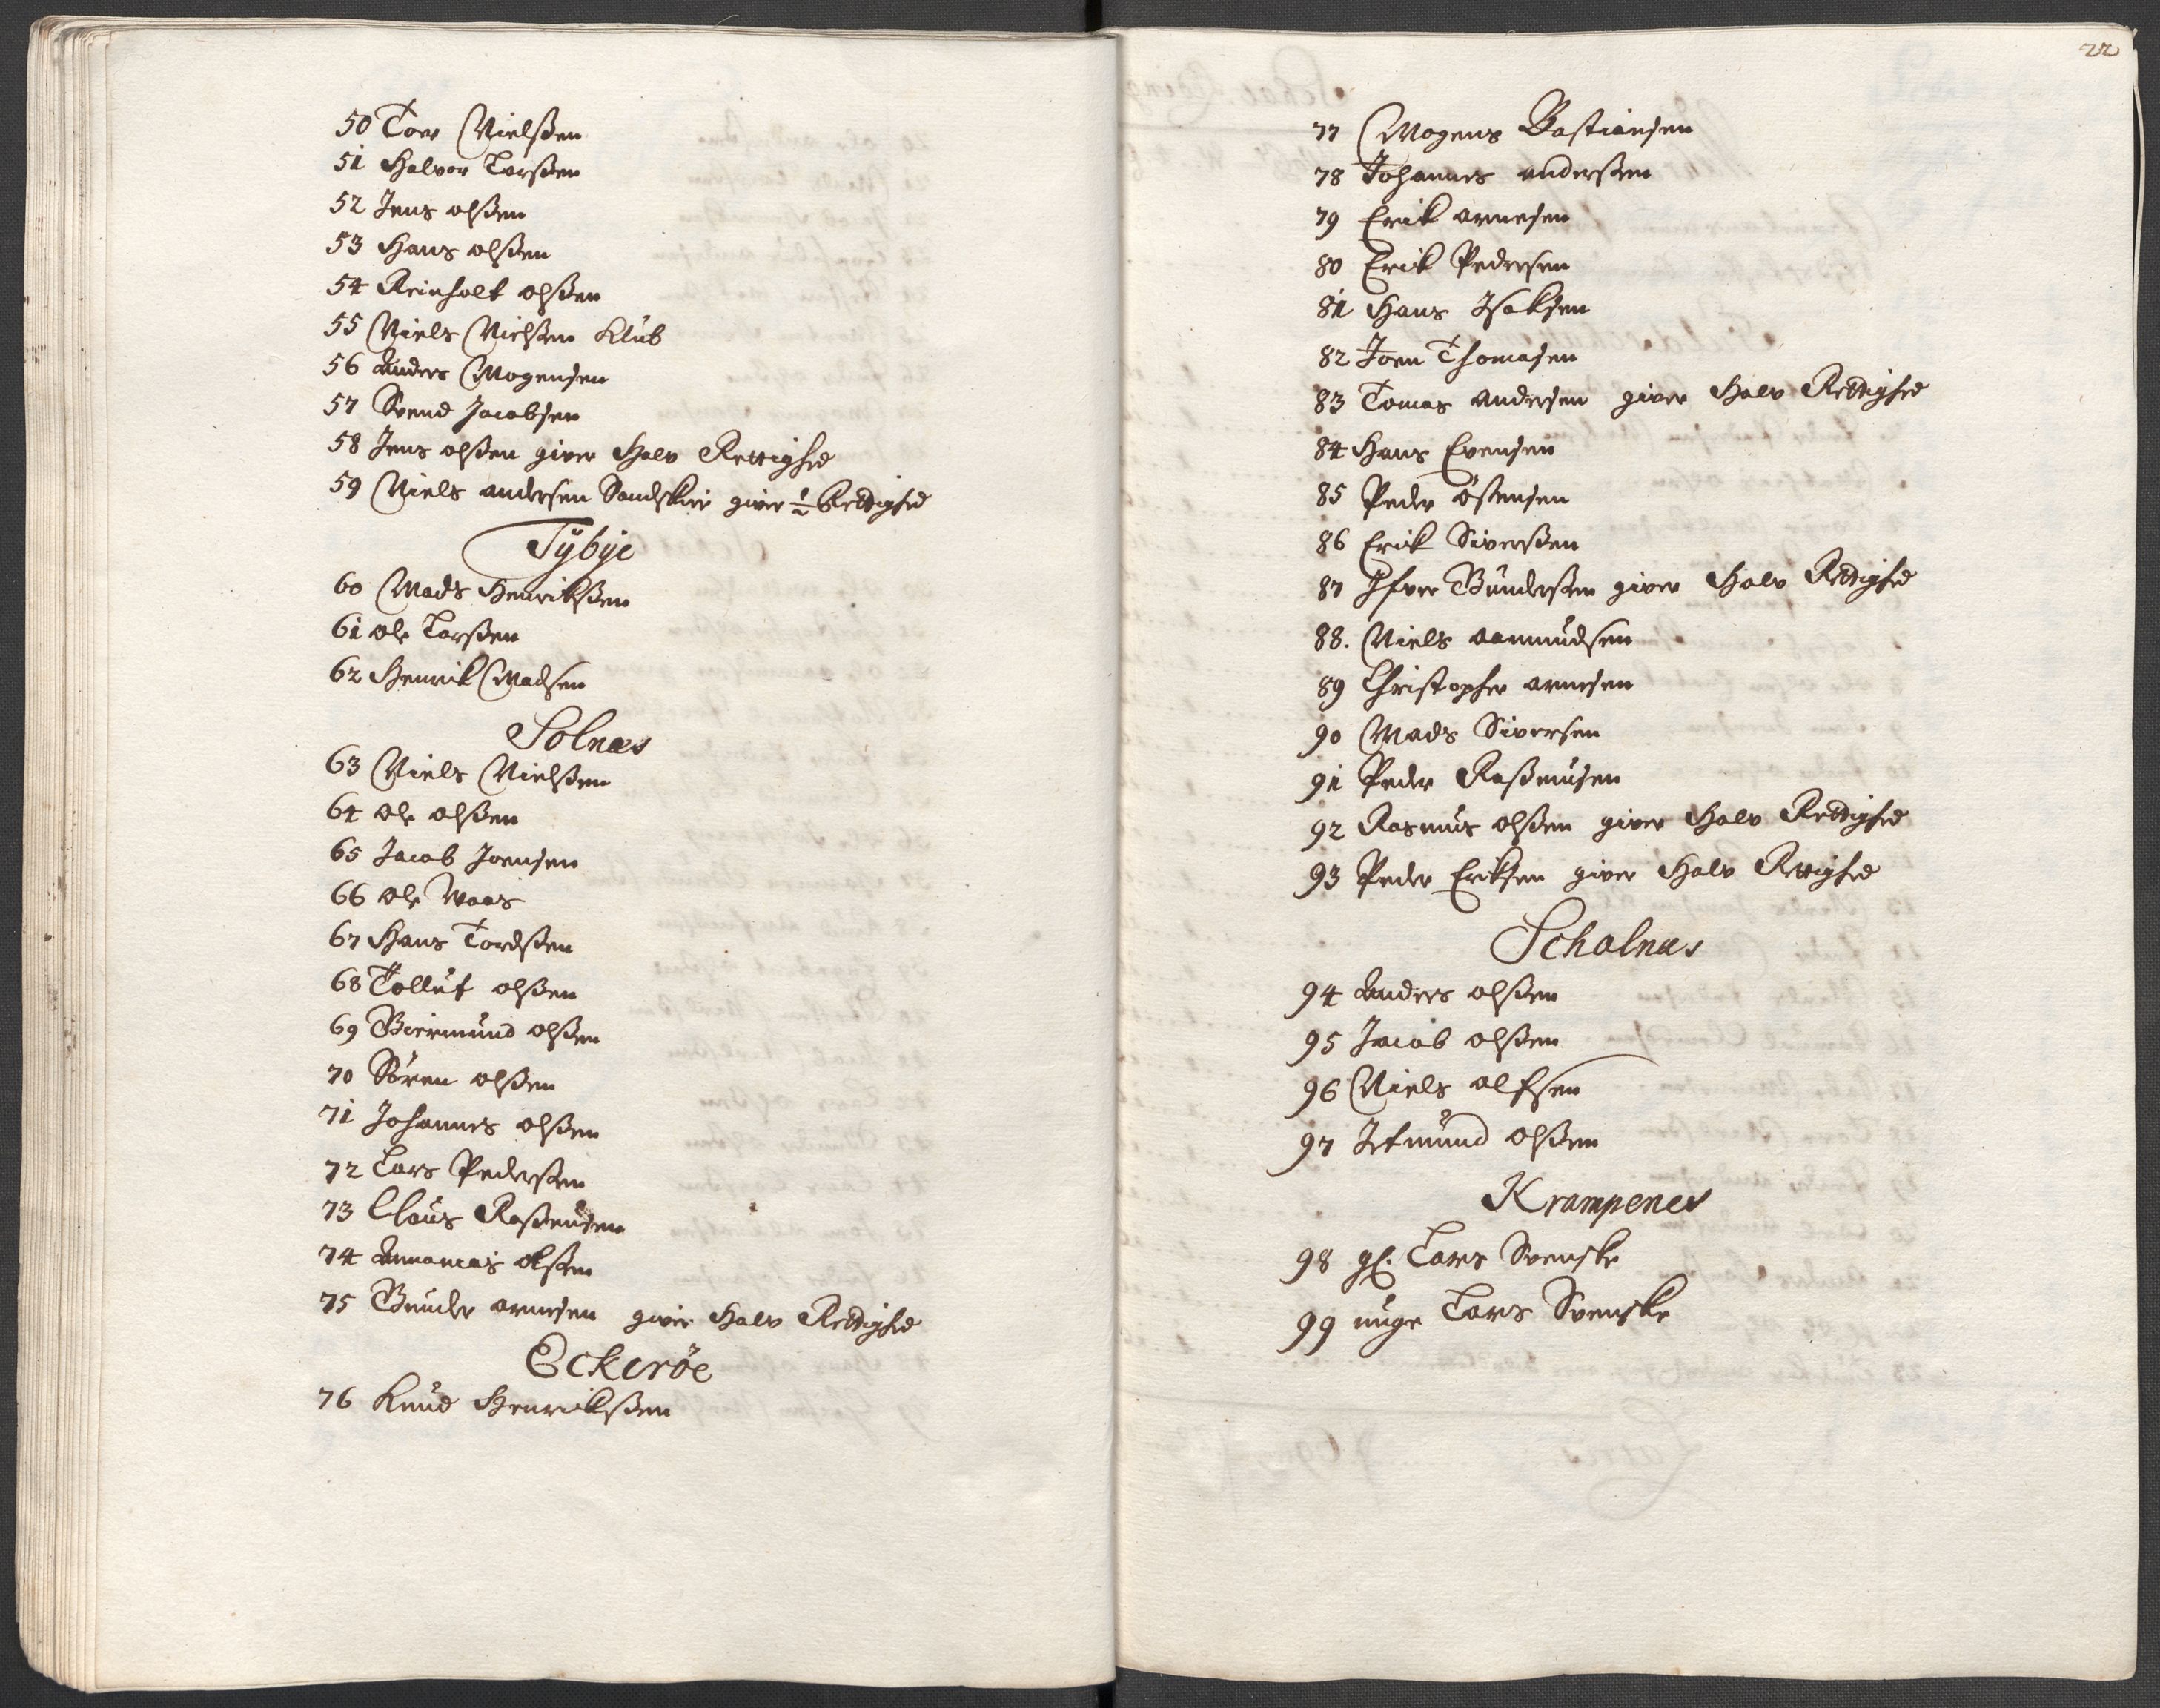 50 Tore Nielsßen
51 Halvor Larsßen
52 Jens olsßen
53 Hans olsßen
54 Reinholt olsßen
55 Niels Nielsßen Klüb
56 Anders Mogensen
57 Svend Jacobsen
58 Jens olsßen giver Halv Rettighed
59 Niels andersen giver ½ Rettighed
Tÿbÿe
60 Mads Henriksßen
61 ole Larsßen
62 Henrik Madsen
Solnæs
63 Niels Nielsßen
64 ole olsßen
65 Jacob Joensen
66 ole Waas
67 Hans Tordsßen
68 Tollüf olsßen
69 Biermünd olsßen
70 Sören olsßen
71 Johannes olsßen
72 Lars Pedersßen
73 Claus Raßmüsen
74 Annanias olsßen
75 Bünde arnesen giver Halv Rettighed
Eckeröe
76 Knüd Henriksßen
22
77 Mogens Bastiansen
78 Johannes andersßen
79 Erik arnesen
80 Erik Pedersen
81 Hans Isaksen
82 Joen Thomasen
83 Tomas andersen giver Halv Rettighed
84 Hans Evensen
85 Peder östensen
86 Erik Siversßen
87 Ifver Bündersßen giver Halv Rettighed
88. Niels aamündsen
89 Christopher arnesen
90 Mads Siversen
91 Peder Raßmüsen
92 Rasmüs olsßen giver Halv Rettighed
93 Peder Eriksen giver Halv Rettighed
Scholnæs
94 Anders olsßen
95 Jacob olsßen
96 Niels olfsen
97 Jetmünd olsßen
Krampenes
98 gl. Lars Svenske
99 unge Lars Svenske